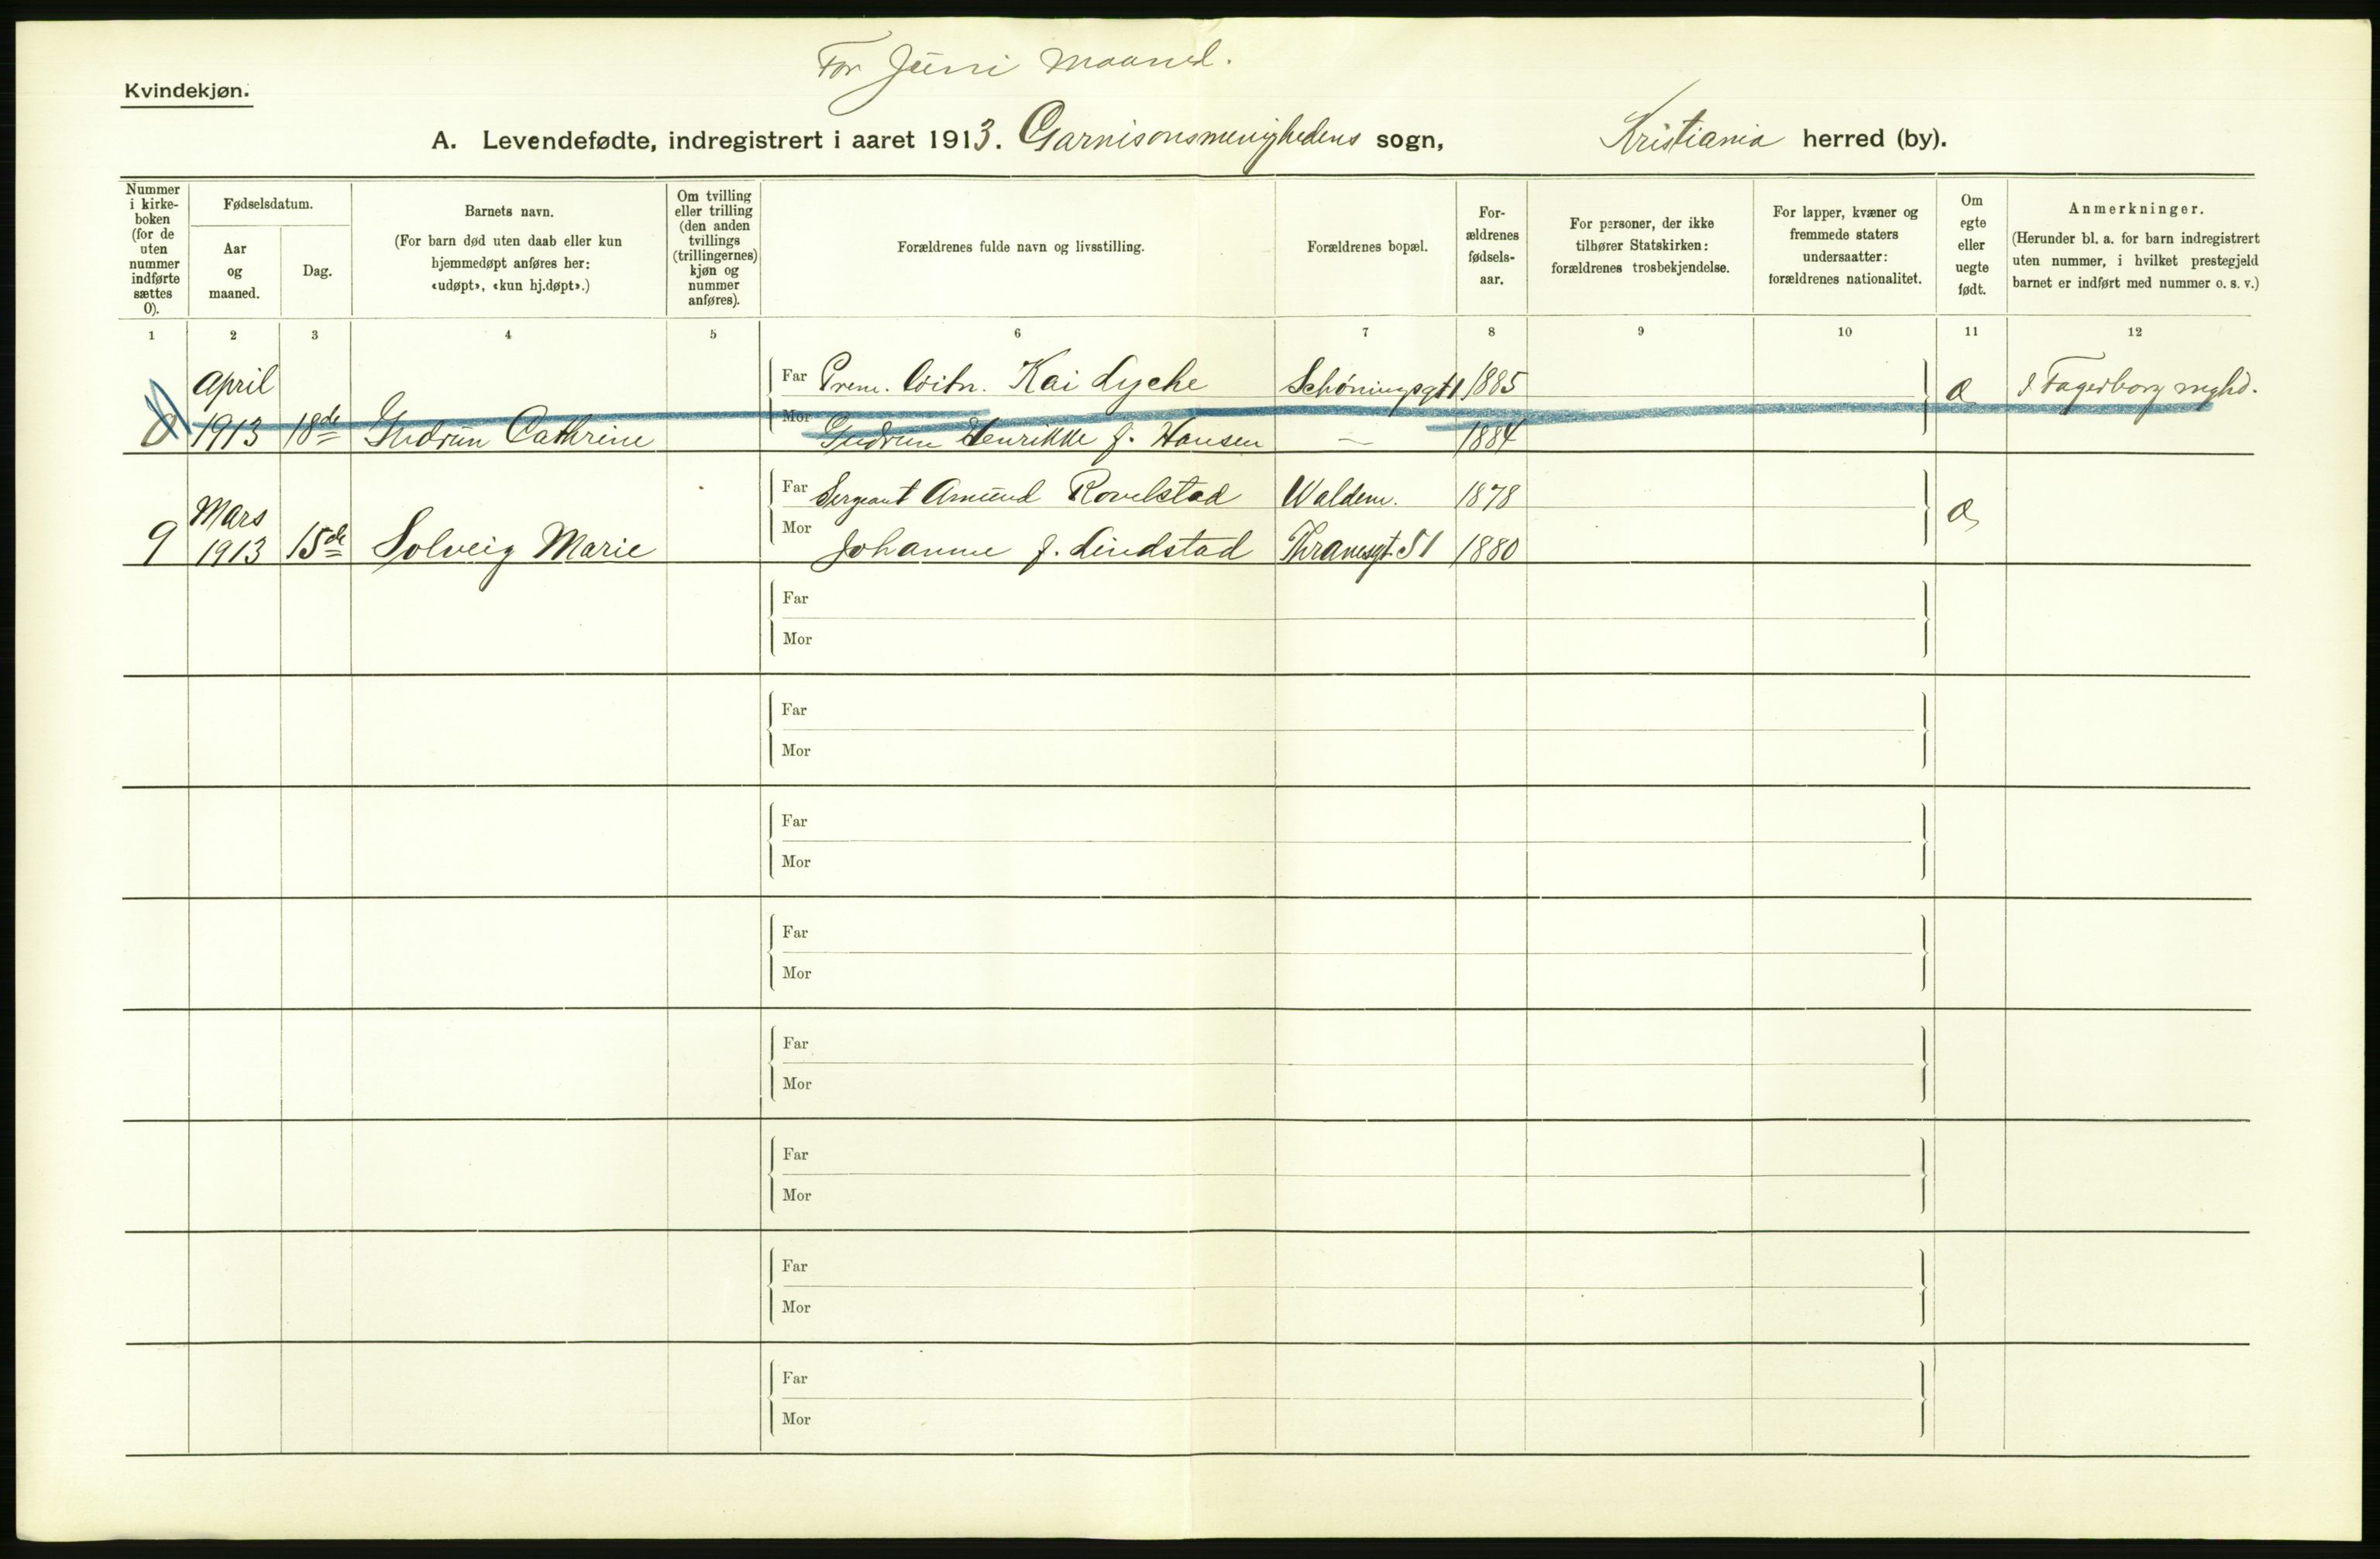 For Juni Maaned.
Kvindekjøn.
A. Levendefødte, indregistrert i aaret 1913. Garnisonsmenighedens sogn, Kristiania herred (by).
Nummer i kirke-boken (for de uten nummer indførte sættes 0).
Fødselsdatum.
Aar og maaned.
Dag.
Barnets navn.
(For barn død uten daab eller kun hjemmedøpt anføres her: «udøpt», «kun hj.døpt».)
Om tvilling eller trilling (den anden tvillings (trillingernes) kjøn og nummer anføres).
Forældrenes fulde navn og livsstilling.
Forældrenes bopæl.
For-ældrenes fødsels-aar.
For personer, der ikke tilhører Statskirken: forældrenes trosbekjendelse.
For lapper, kvæner og fremmede staters undersaatter: forældrenes nationalitet.
Om egte eller uegte født.
Anmerkninger.
(Herunder bl. a. for barn indregistrert uten nummer, i hvilket prestegjeld barnet er indført med nummer o. s. v.)
1 2 3 4 5 6 7 8 9 10 11 12
April Far Prem. løitn. Kai Lyche Schøningsgt 1 1885 Æ I Fagerborg mghd.
0 1913 18de Gudrun Cathrine Mor Gudrun Henrikke f. Hansen — 1884
Mars Far Sergeant Amund Rovelstad Waldem. 1878 Æ
9 1913 15de Solveig Marie Mor Johanne f. Lindstad Thranesgt. 51 1880
Far
Mor
Far
Mor
Far
Mor
Far
Mor
Far
Mor
Far
Mor
Far
Mor
Far
Mor